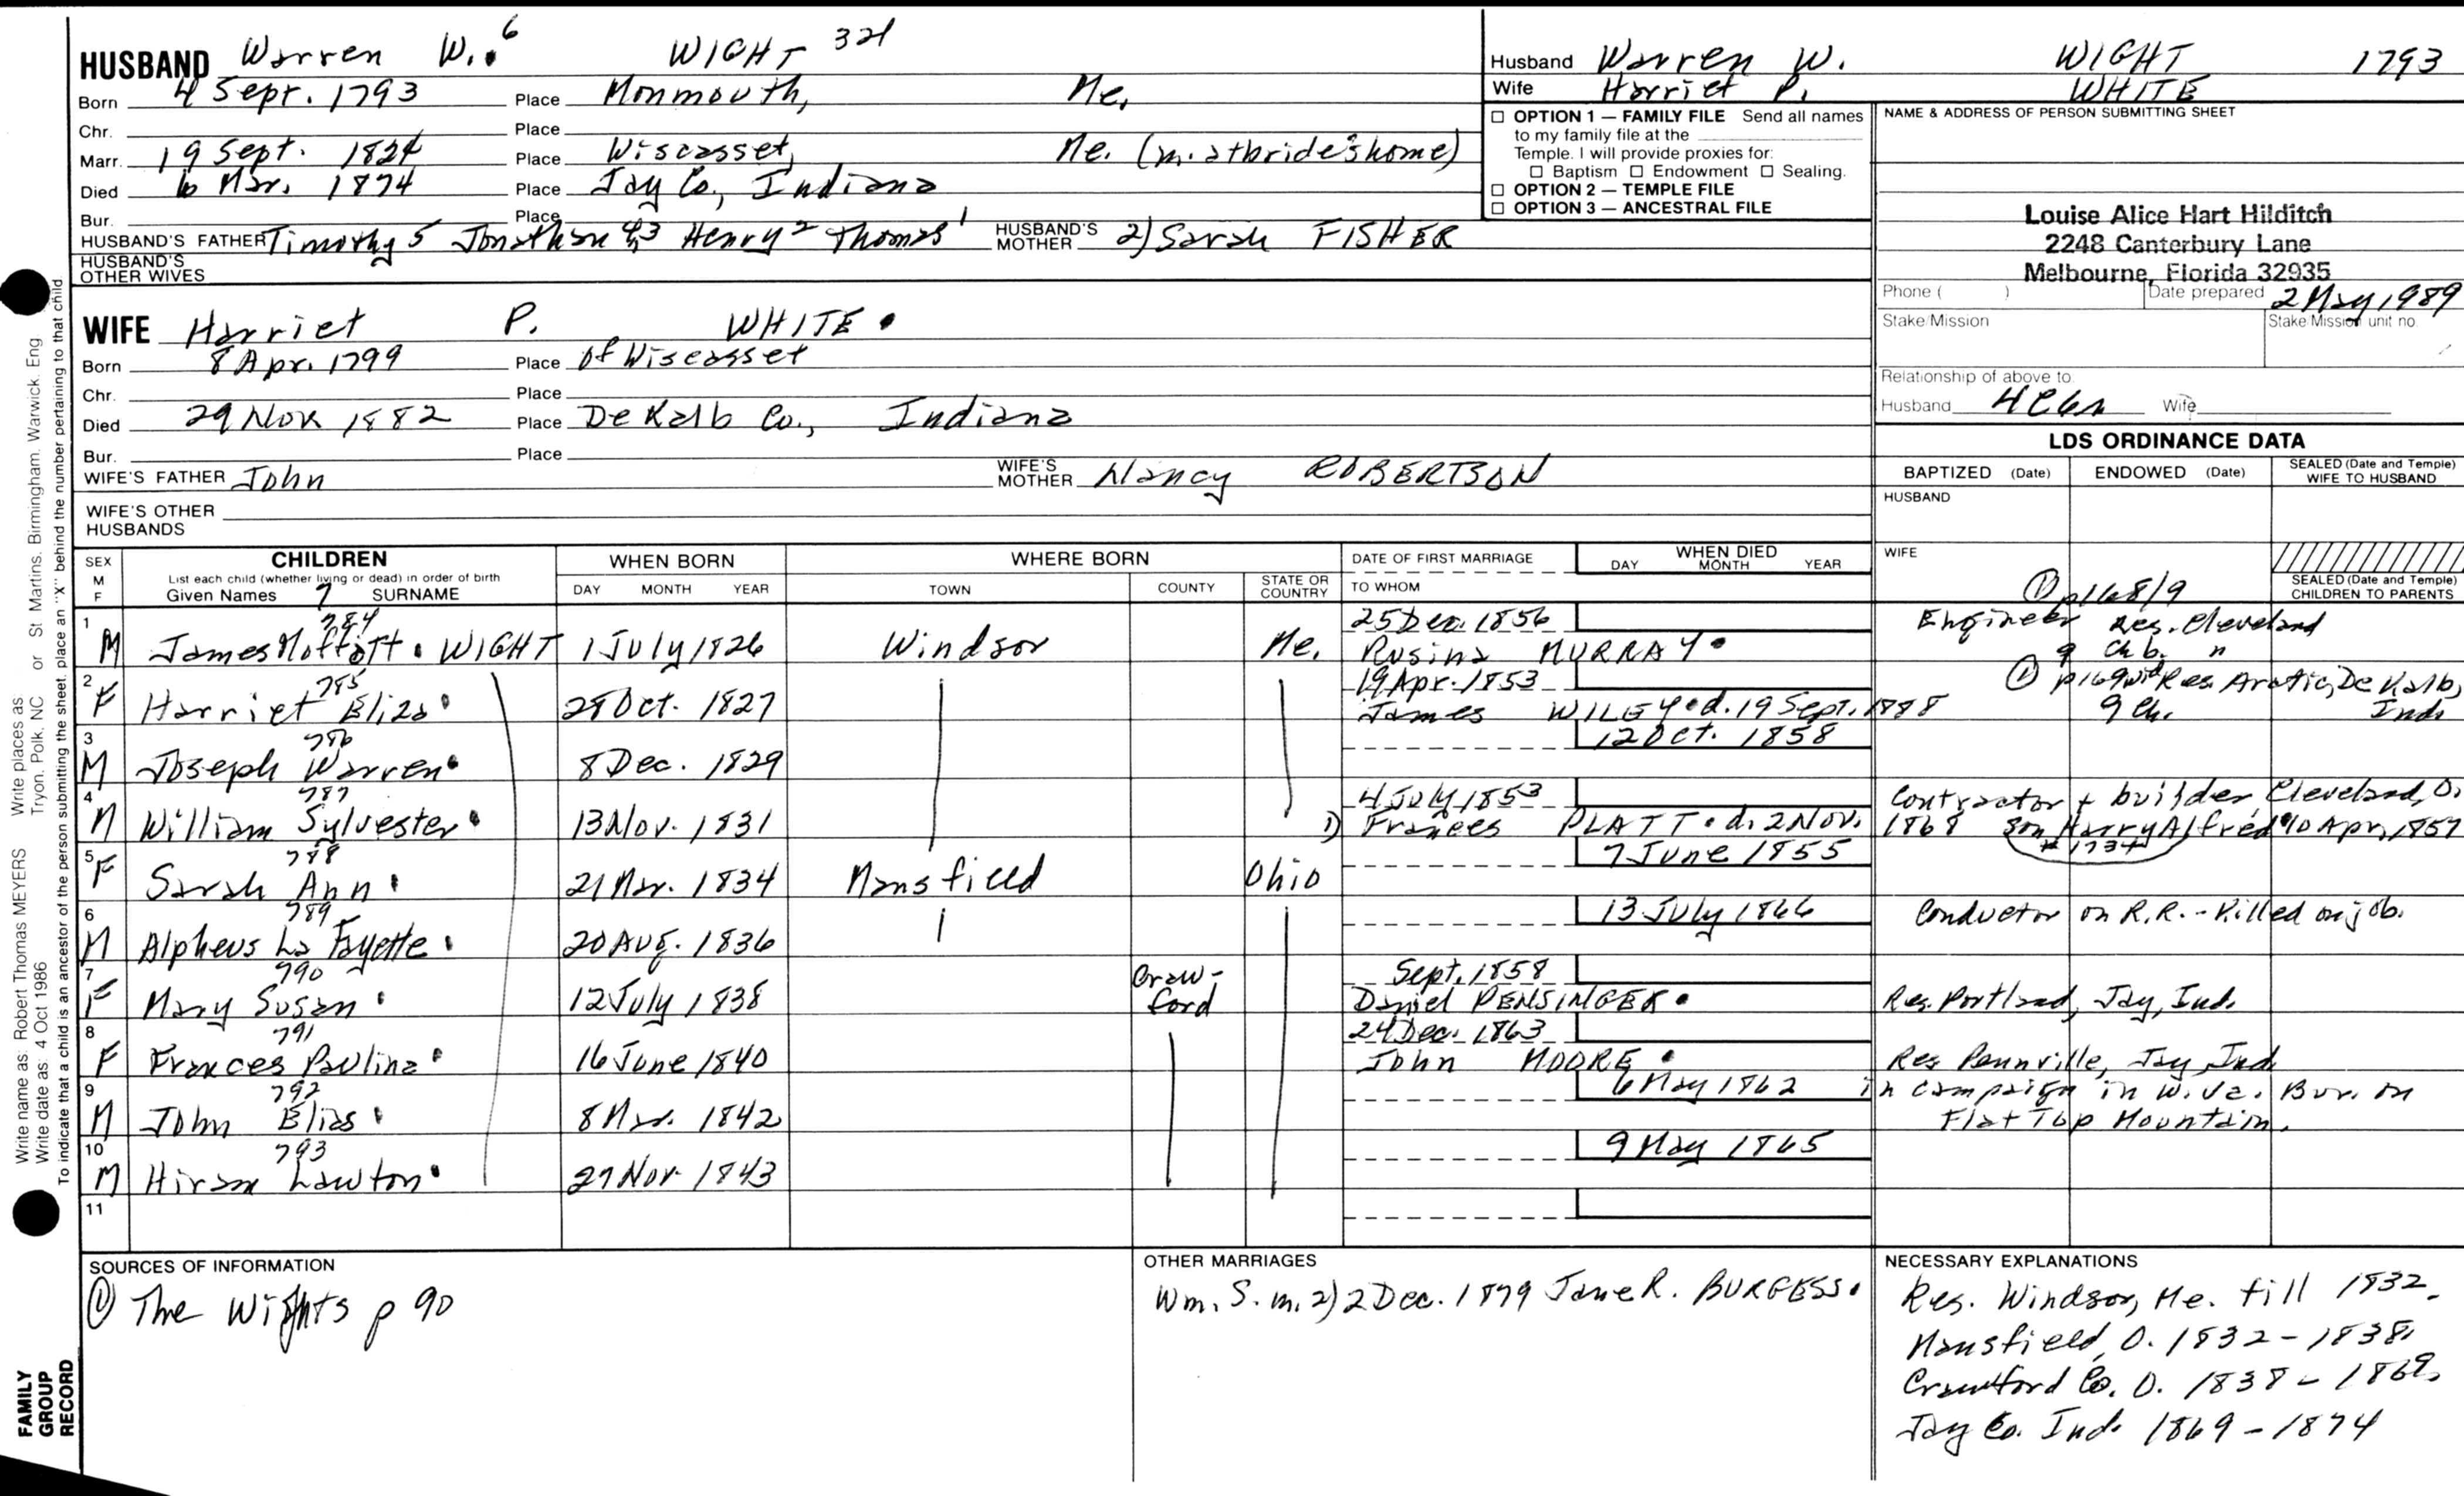 HUSBAND Warren W.⁶ WIGHT 321
Born 4 Sept. 1793 Place Monmouth, Me.
Chr. Place
Marr. 19 Sept. 1824 Place Wiscasset, Me. (m. at bride's home)
Died 6 Mar. 1874 Place Jay Co., Indiana
Bur. Place
HUSBAND'S FATHER Timothy 5 Jonathan 4,3 Henry 2 Thomas 1 HUSBAND'S MOTHER 2) Sarah FISHER
HUSBAND'S OTHER WIVES
Husband Warren W. WIGHT 1793
Wife Harriet P. WHITE
☐ OPTION 1 — FAMILY FILE Send all names
to my family file at the
Temple. I will provide proxies for:
☐ Baptism ☐ Endowment ☐ Sealing.
☐ OPTION 2 — TEMPLE FILE
☐ OPTION 3 — ANCESTRAL FILE
NAME & ADDRESS OF PERSON SUBMITTING SHEET
Louise Alice Hart Hilditch
2248 Canterbury Lane
Melbourne, Florida 32935
Phone ( ) Date prepared 2 May 1989
Stake/Mission Stake/Mission unit no.
Relationship of above to
Husband Wife
WIFE Harriet P. WHITE •
Born 8 Apr. 1799 Place of Wiscasset
Chr. Place
Died 29 Nov. 1882 Place De Kalb Co., Indiana
Bur. Place
WIFE'S FATHER John WIFE'S MOTHER Nancy ROBERTSON
WIFE'S OTHER
HUSBANDS
LDS ORDINANCE DATA
BAPTIZED (Date) ENDOWED (Date) SEALED (Date and Temple) WIFE TO HUSBAND
HUSBAND
WIFE
SEALED (Date and Temple) CHILDREN TO PARENTS
SEX M F CHILDREN WHEN BORN WHERE BORN DATE OF FIRST MARRIAGE WHEN DIED
List each child (whether living or dead) in order of birth
Given Names 7 SURNAME DAY MONTH YEAR TOWN COUNTY STATE OR COUNTRY TO WHOM DAY MONTH YEAR
① p168/9
784 25 Dec. 1856 Engineer Res. Cleveland
1 M James Moffatt • WIGHT 1 July 1826 Windsor Me. Rosina MURRAY • 9 Ch b. "
785 19 Apr. 1853 ① p169 Res Arctic, De Kalb,
2 F Harriet Eliza • 28 Oct. 1827 James WILEY • d. 19 Sept. 1888 9 Ch. Ind.
786 12 Oct. 1858
3 M Joseph Warren • 8 Dec. 1829
787 4 July 1853 Contractor + builder Cleveland, O.
4 M William Sylvester • 13 Nov. 1831 1) Frances PLATT • d. 2 Nov. 1868 son Harry Alfred 10 Apr. 1857
* 1734
788 7 June 1855
5 F Sarah Ann • 21 Mar. 1834 Mansfield Ohio
789 13 July 1866 Conductor on R.R. - Killed on job.
6 M Alpheus La Fayette • 20 Aug. 1836
790 Craw- Sept. 1858
7 F Mary Susan • 12 July 1838 ford Daniel PENSINGER • Res. Portland, Jay, Ind.
791 24 Dec. 1863
8 F Frances Paulina • 16 June 1840 John MOORE • Res Pennville, Jay, Ind
792 6 May 1862 in campaign in W. Va. Bur. on
9 M John Elias • 8 Mar. 1842 Flat Top Mountain.
793 9 May 1865
10 M Hiram Lawton • 27 Nov. 1843
11
SOURCES OF INFORMATION
① The Wights p 90
OTHER MARRIAGES
Wm. S. m. 2) 2 Dec. 1879 Jane R. BURGESS •
NECESSARY EXPLANATIONS
Res. Windsor, Me. till 1832.
Mansfield, O. 1832 - 1838
Crawford Co. O. 1838 - 1869
Jay Co. Ind. 1869 - 1874
Write name as: Robert Thomas MEYERS Write places as: Tryon, Polk, NC or St Martins, Birmingham, Warwick, Eng
Write date as: 4 Oct 1986
To indicate that a child is an ancestor of the person submitting the sheet, place an "X" behind the number pertaining to that child.
FAMILY
GROUP
RECORD